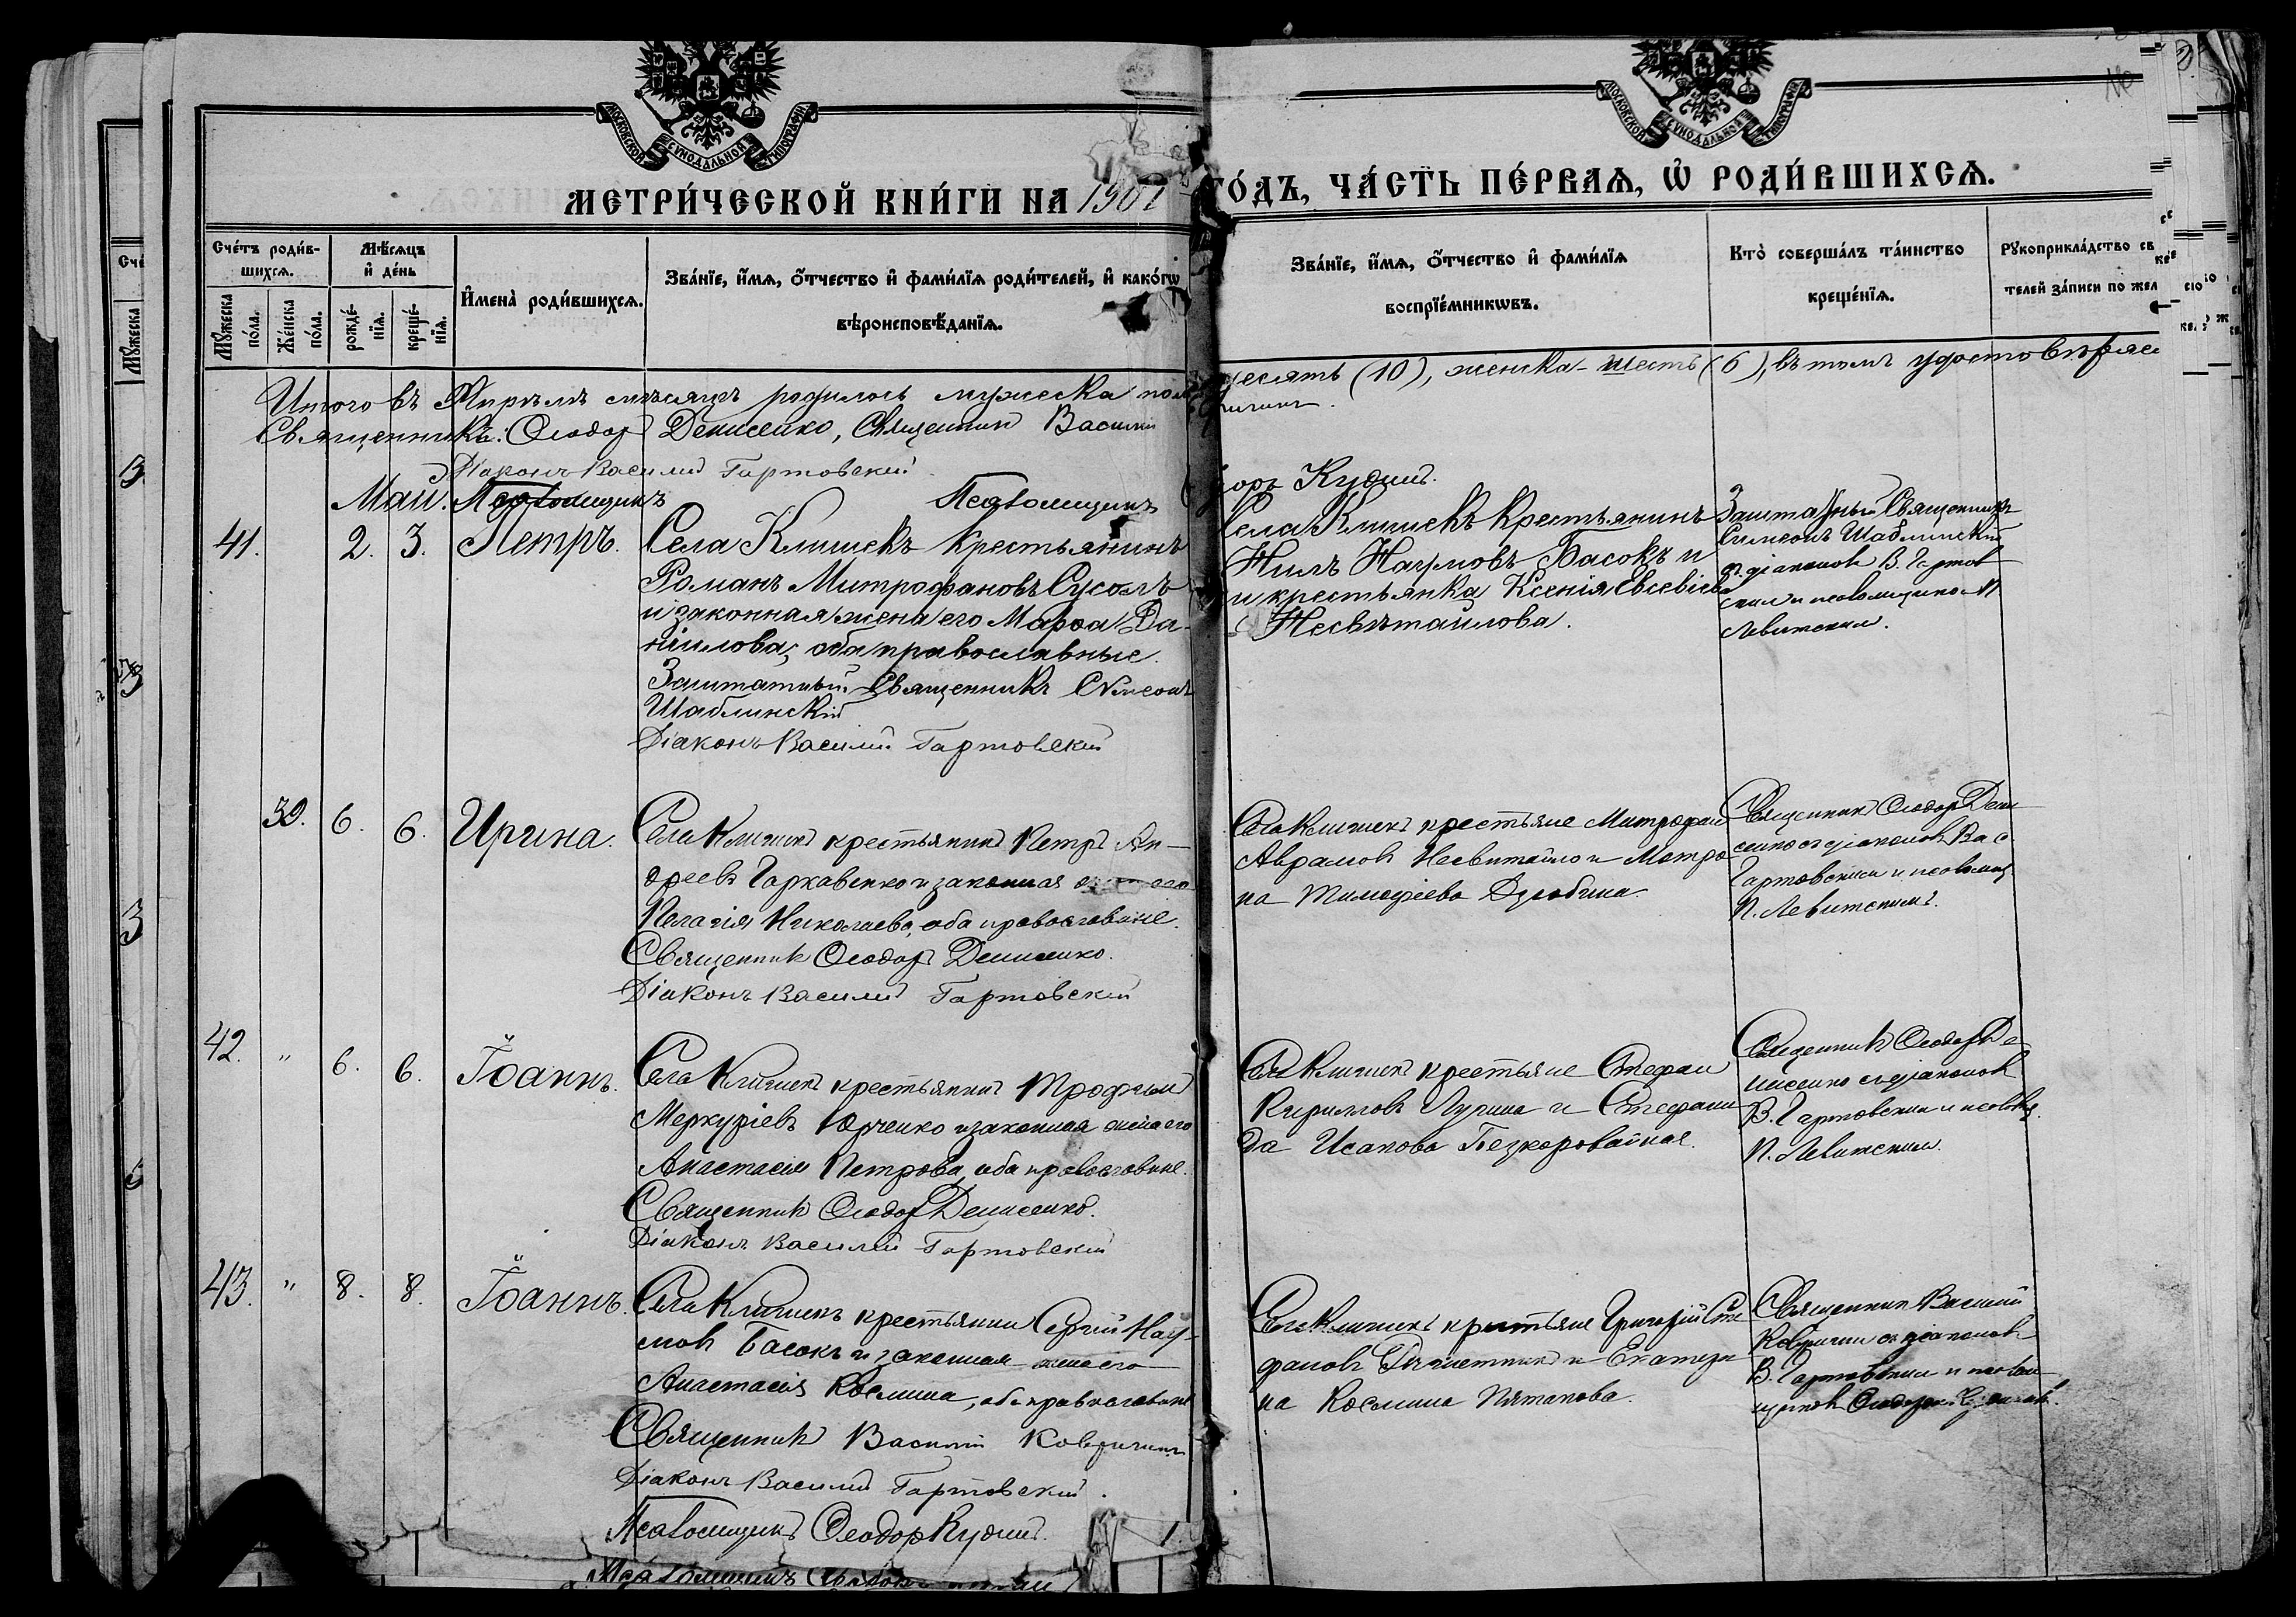 МОСКОВСКОЙ СѴНОДАЛЬНОЙ ТИПОГРАФІИ
МОСКОВСКОЙ СѴНОДАЛЬНОЙ ТИПОГРАФІИ
МЕТРИ́ЧЕСКОЙ КНИ́ГИ НА 1907
ГО́ДЪ, ЧА́СТЬ ПЕ́РВАѦ, Ѡ҆ РОДИ́ВШИХСѦ.
Сче́тъ роди́в-
шихсѧ.
Мѣ́сѧцъ
и҆ де́нь
И҆мена̀ роди́вшихсѧ.
Зва́нїе, и҆́мѧ, ѻ҆́тчество и҆ фами́лїѧ роди́телей, и҆ како́гѡ
вѣроисповѣ́данїѧ.
Мꙋ́жеска
по́ла.
Же́нска
по́ла.
рожде́-
нїѧ.
креще́-
нїѧ.
Зва́нїе, и҆́мѧ, ѻ҆́тчество и҆ фами́лїѧ
воспрїе́мникѡвъ.
Кто̀ соверша́лъ та́инство
креще́нїѧ.
Рꙋкоприкла́дство св
телей за́писи по жел
Итого въ Апрѣлѣ мѣсяцѣ родилось мужеска пола
десять (10), женска - шесть (6), въ томъ удостовѣряе
Священникъ: Ѳеодоръ Денисенко, Священникъ Василій
Діаконъ Василій Гартовскій
Псаломщикъ Кудинъ.
Май. Псаломщикъ
41. 2. 3. Петръ.
Села Клишекъ крестьянинъ
Романъ Митрофановъ Сусолъ
и законная жена его Марѳа Да-
ніилова, оба православные.
Заштатный Священникъ Сѵмеонъ
Шаблинскій
Діаконъ Василій Гартовскій
Села Клишекъ крестьянинъ
Нилъ Наумовъ Басокъ и
и крестьянка Ксенія Евсевіева
Несвѣтайлова.
Заштатный Священникъ
Симеонъ Шаблинскій
съ діакономъ В. Гартов
скимъ и псаломщикомъ П
Левитскимъ.
39. 6. 6. Ирина.
Села Клишекъ крестьянинъ Петръ Ан-
дреевъ Гаркавенко и законная жена его
Пелагія Николаева, оба православные.
Священникъ Ѳеодоръ Денисенко.
Діаконъ Василій Гартовскій
Села Клишекъ крестьяне Митрофанъ
Аврамовъ Несвитайло и Матро
на Тимоѳеева Дзюбина.
Священникъ Ѳеодоръ Дени
сенко съ діакономъ Вас
Гартовскимъ и псаломщ
П. Левитскимъ.
42. " 6. 6. Іоаннъ.
Села Клишекъ крестьянинъ Трофимъ
Меркуріевъ Юрченко и законная жена его
Анастасія Петрова, оба православные.
Священникъ Ѳеодоръ Денисенко.
Діаконъ Василій Гартовскій
Села Клишекъ крестьяне Стефанъ
Кирилловъ Лузина и Стефани
да Исакова Безкоровайная.
Священникъ Ѳеодоръ Де
нисенко съ діакономъ
В. Гартовскимъ и псаломщ.
П. Левитскимъ.
43. " 8. 8. Іоаннъ.
Села Клишекъ крестьянинъ Сергій Нау-
мовъ Басокъ и законная жена его
Анастасія Косьмина, оба православные
Священникъ Василій Ковригинъ
Діаконъ Василій Гартовскій.
Псаломщикъ Ѳеодоръ Кудинъ.
Села Клишекъ крестьяне Григорій Сте
фановъ и Екатери
на Косьмина Пятакова.
Священникъ Василій
Ковригинъ съ діакономъ
В. Гартовскимъ и псалом
щикомъ Ѳеодоромъ Кудинымъ.
Псаломщикъ